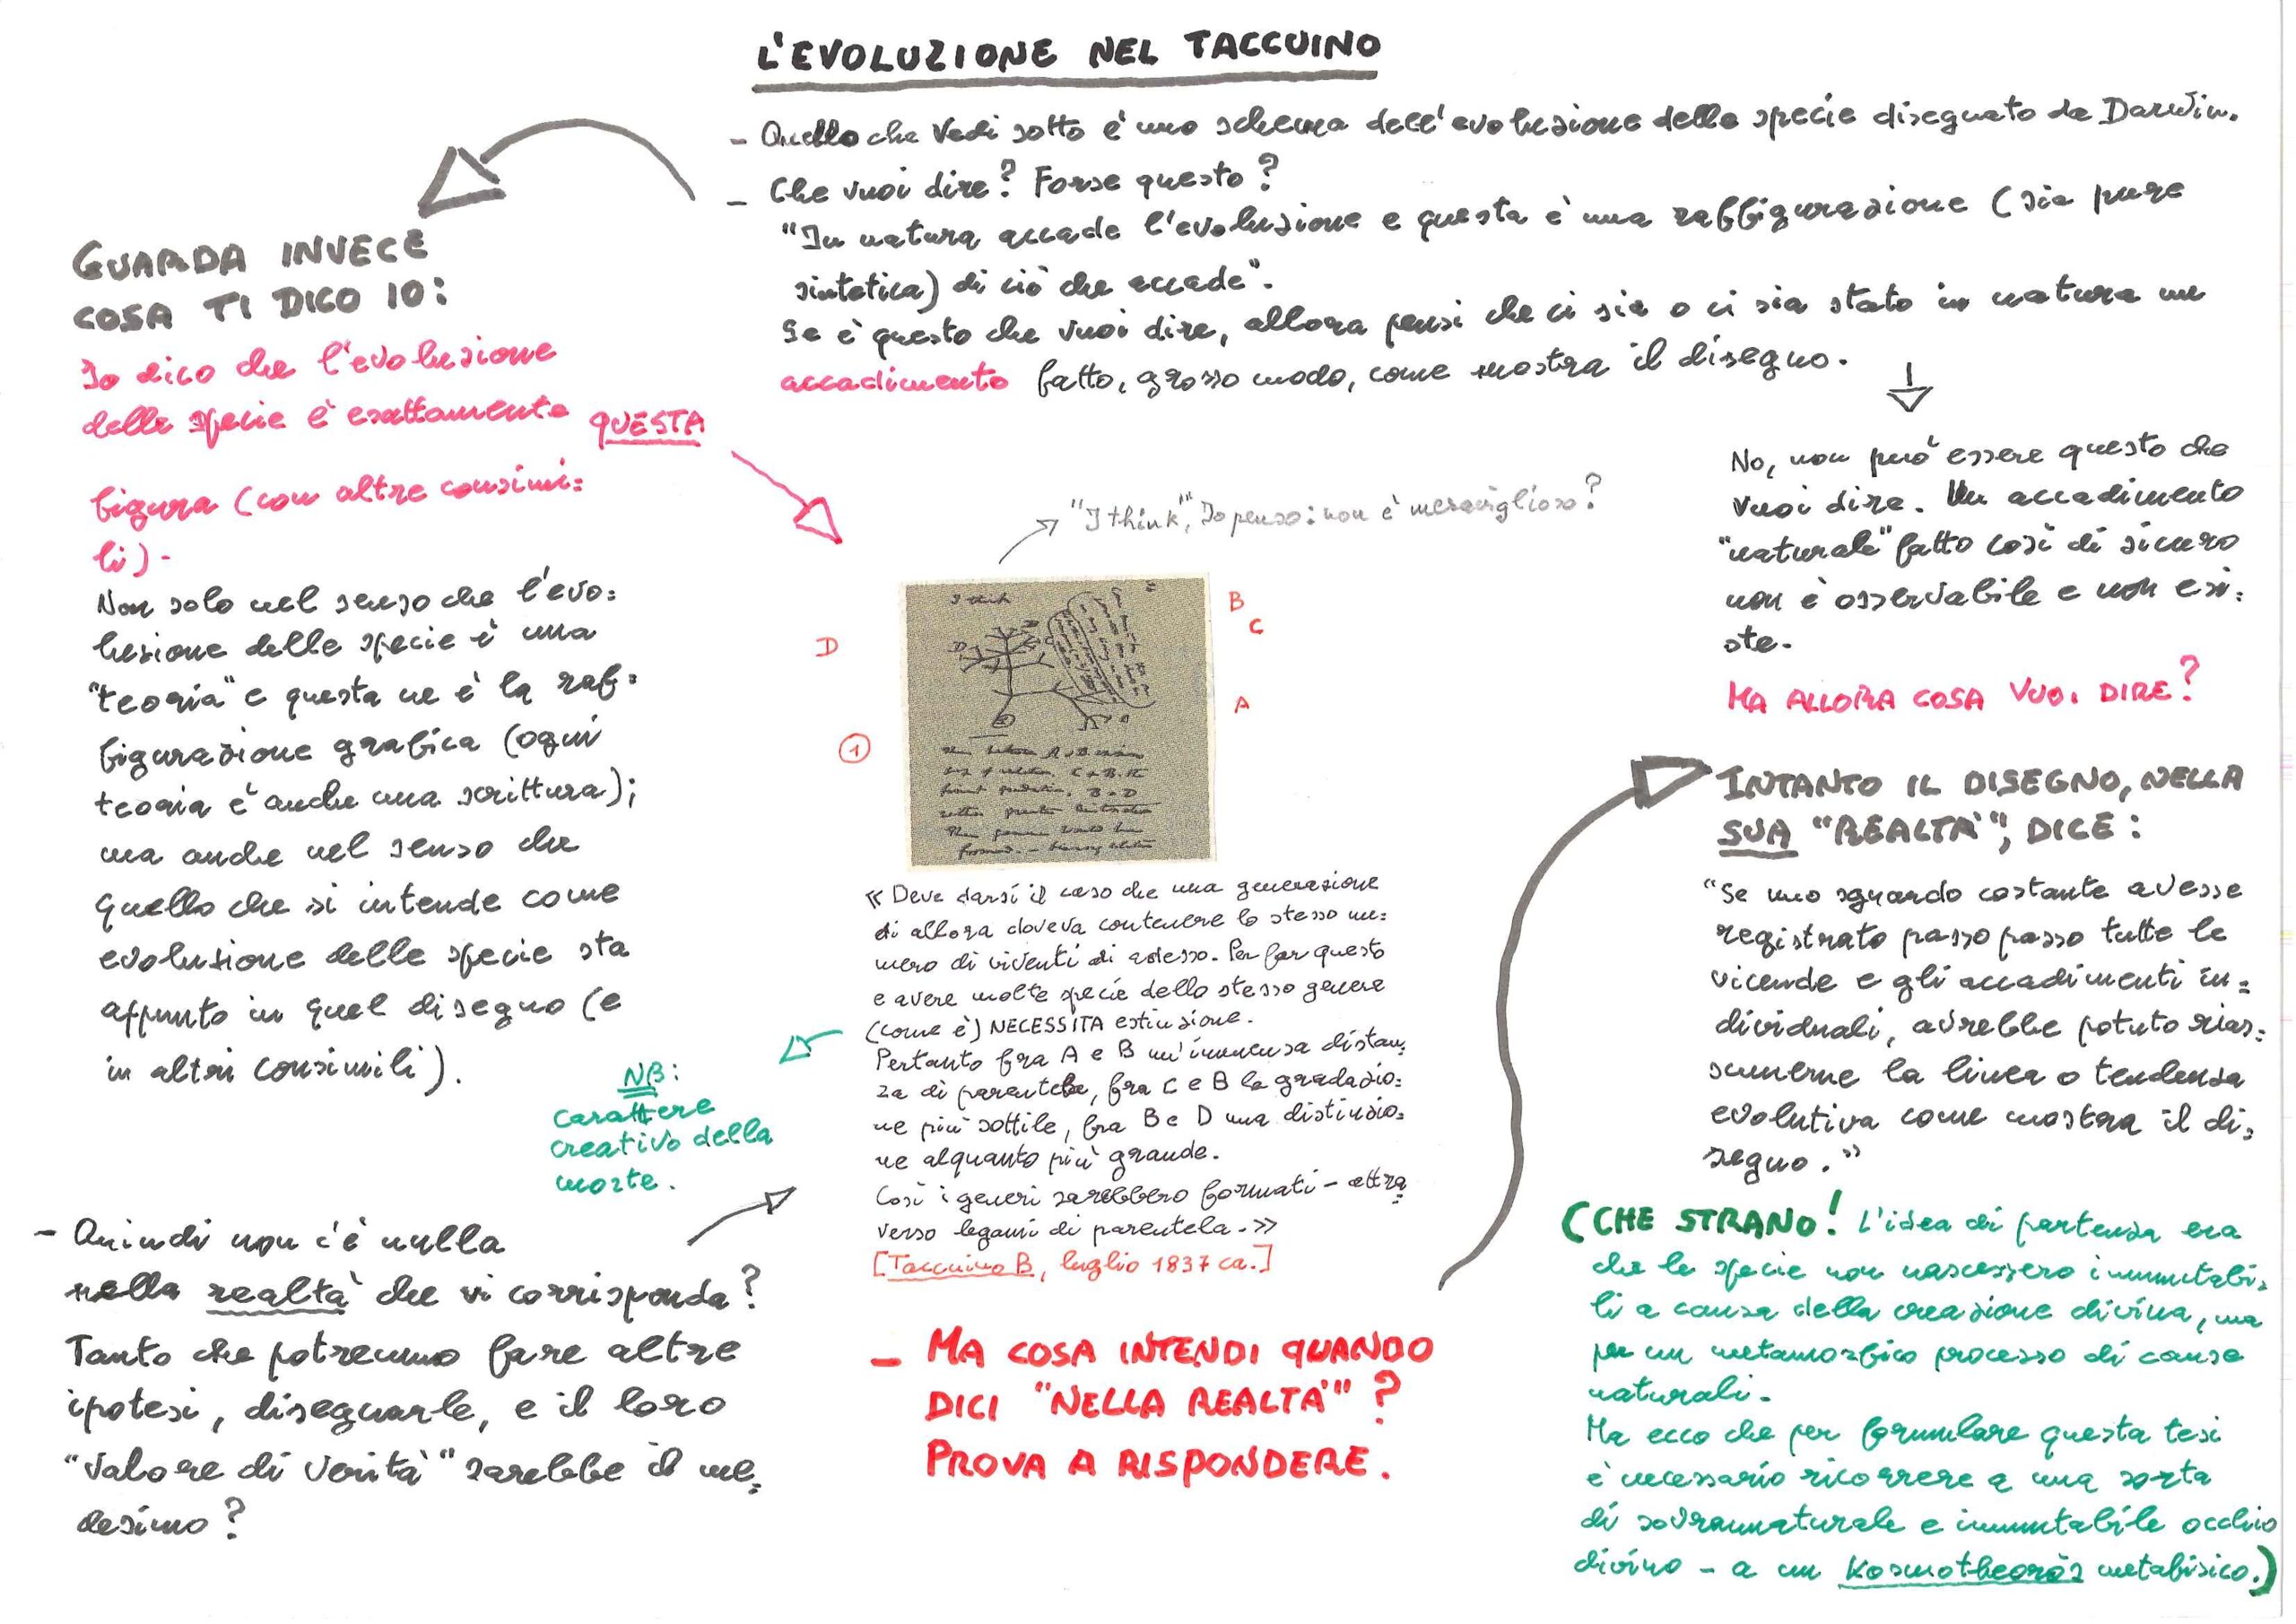 L'EVOLUZIONE NEL TACCUINO
- Quello che vedi sotto è uno schema dell'evoluzione delle specie disegnato da Darwin.
- Che vuoi dire? Forse questo?
"In natura accade l'evoluzione e questa è una raffigurazione (sia pure
sintetica) di ciò che accade".
Se è questo che vuoi dire, allora pensi che ci sia o ci sia stato in natura un
accadimento fatto, grosso modo, come mostra il disegno.
No, non può essere questo che
vuoi dire. Un accadimento
"naturale" fatto così di sicuro
non è osservabile e non esi=
ste.
MA ALLORA COSA VUOI DIRE?
GUARDA INVECE
COSA TI DICO IO:
Io dico che l'evoluzione
delle specie è esattamente QUESTA
figura (con altre consimi=
li).
Non solo nel senso che l'evo=
luzione delle specie è una
"teoria" e questa ne è la raf=
figurazione grafica (ogni
teoria è anche una scrittura);
ma anche nel senso che
quello che si intende come
evoluzione delle specie sta
appunto in quel disegno (e
in altri consimili).
"I think", Io penso: non è meraviglioso?
I think
B
C
D
A
1
« Deve darsi il caso che una generazione
di allora doveva contenere lo stesso nu=
mero di viventi di adesso. Per far questo
e avere molte specie dello stesso genere
(come è) NECESSITA estinzione.
Pertanto fra A e B un'immensa distan=
za di parentela, fra C e B la gradazio=
ne più sottile, fra B e D una distinzio=
ne alquanto più grande.
Così i generi sarebbero formati – attra=
verso legami di parentela. »
[Taccuino B, luglio 1837 ca.]
NB:
carattere
creativo della
morte.
- Quindi non c'è nulla
nella realtà che vi corrisponda?
Tanto che potremmo fare altre
ipotesi, disegnarle, e il loro
"valore di verità" sarebbe il me=
desimo?
- MA COSA INTENDI QUANDO
DICI "NELLA REALTÀ"?
PROVA A RISPONDERE.
INTANTO IL DISEGNO, NELLA
SUA "REALTÀ", DICE:
"Se uno sguardo costante avesse
registrato passo passo tutte le
vicende e gli accadimenti in=
dividuali, avrebbe potuto rias=
sumerne la linea o tendenza
evolutiva come mostra il di=
segno."
(CHE STRANO! L'idea di partenza era
che le specie non nascessero immutabi=
li a causa della creazione divina, ma
per un metamorfico processo di cause
naturali.
Ma ecco che per formulare questa tesi
è necessario ricorrere a una sorta
di sovrannaturale e immutabile occhio
divino – a un Kosmotheoròs metafisico.)